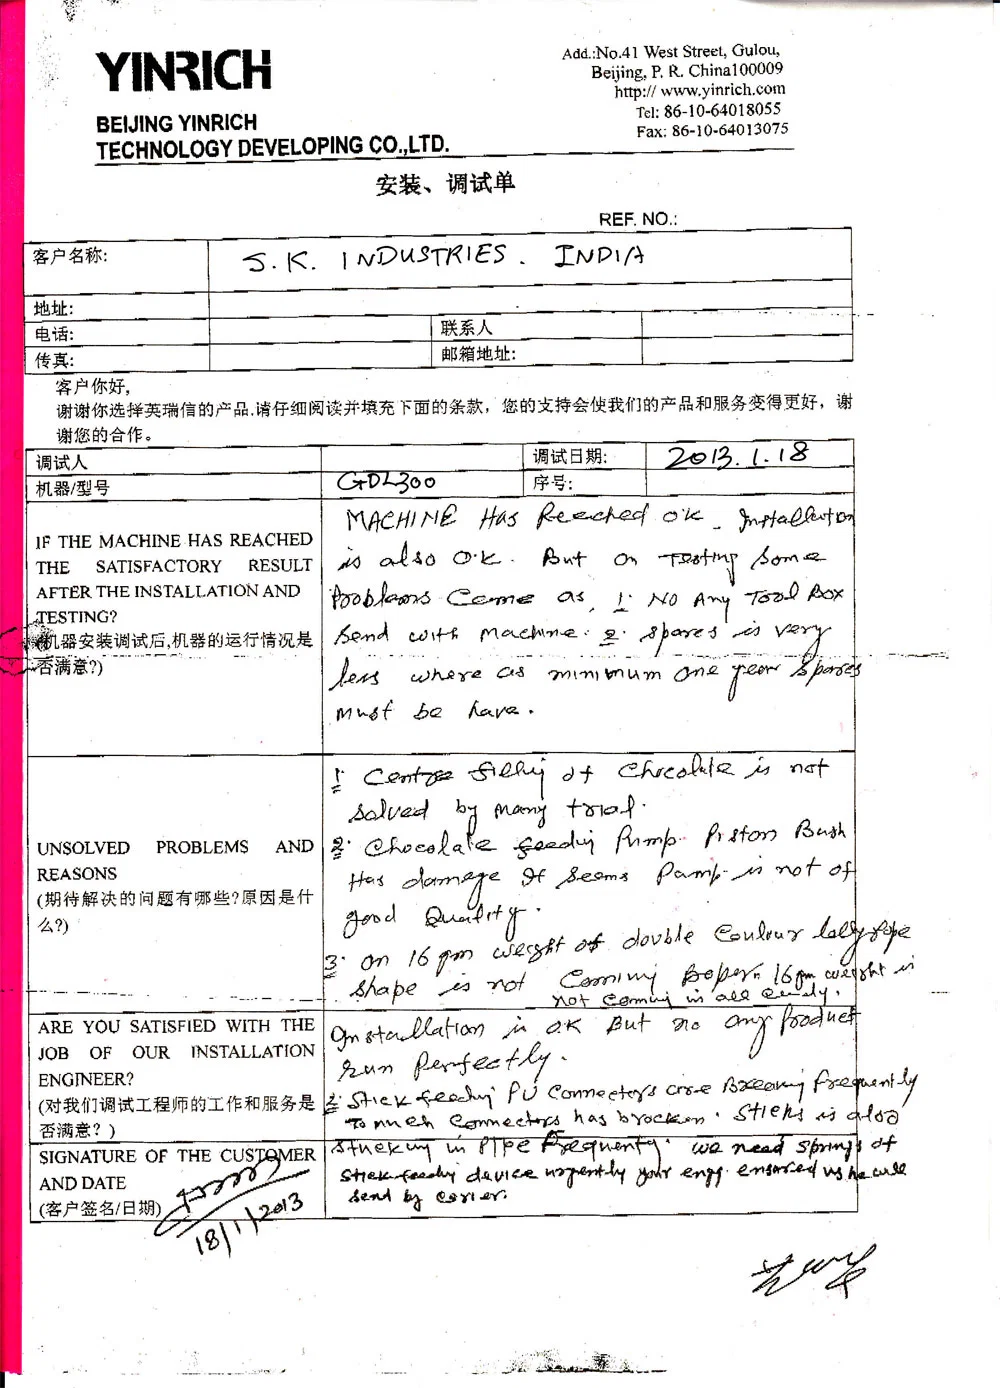 YINRICH
BEIJING YINRICH
TECHNOLOGY DEVELOPING CO.,LTD.
Add.:No.41 West Street, Gulou,
Beijing, P. R. China100009
http:// www.yinrich.com
Tel: 86-10-64018055
Fax: 86-10-64013075
安装、调试单
REF. NO.:
客户名称: S.K. INDUSTRIES. INDIA
地址:
电话: 联系人
传真: 邮箱地址:
客户你好,
谢谢你选择英瑞信的产品.请仔细阅读并填充下面的条款，您的支持会使我们的产品和服务变得更好，谢
谢您的合作。
调试人 调试日期: 2013.1.18
机器/型号 GDL300 序号:
IF THE MACHINE HAS REACHED
THE SATISFACTORY RESULT
AFTER THE INSTALLATION AND
TESTING?
(机器安装调试后,机器的运行情况是
否满意?)
MACHINE Has Reached ok. Installation
is also O.K. But on Testing Some
Problems Came as, 1. No Any Tool Box
Send with Machine. 2. spares is very
less where as minimum one year spares
must be have.
UNSOLVED PROBLEMS AND
REASONS
(期待解决的问题有哪些?原因是什
么?)
1. Centre filling of Chocolate is not
solved by many trial.
2. Chocolate feeding Pump Piston Bush
Has damage It seems Pump is not of
good Quality.
3. on 16 gm weight of double Coulour lollypope
shape is not Coming Boper. 16gm weight is
not coming in all candy.
ARE YOU SATISFIED WITH THE
JOB OF OUR INSTALLATION
ENGINEER?
(对我们调试工程师的工作和服务是
否满意？)
Installation is ok But no any Product
run Perfectly.
2. Stick feeding PU Connectors are Breaking frequently
To much Connectors has brocken. Sticks is also
stucking in PIPe frequenty. we need springs of
SIGNATURE OF THE CUSTOMER
AND DATE
(客户签名/日期)
Stick feeding device urgently your engg. ensuried us he will
send by corier.
18/1/2013